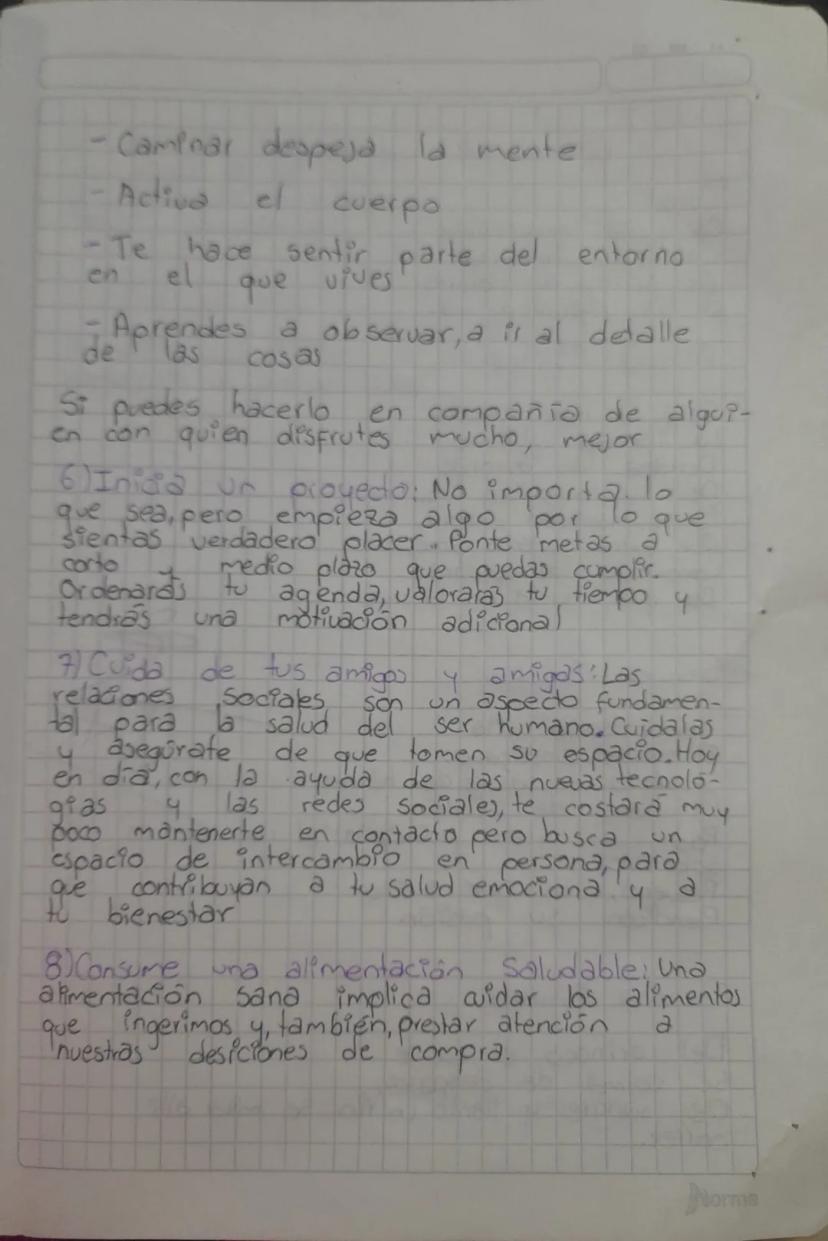 - Caminar despeja la mente
- Activa el cuerpo
- Te hace sentir parte del entorno
en el que vives
- Aprendes a observar, a ir al detalle
de las cosas
Si puedes hacerlo en compañia de algui-
en con quien disfrutes mucho, mejor
6) Inicia un proyecto: No importa lo
que sea, pero empieza algo por lo que
sientas verdadero placer. Ponte metas a
corto y medio plazo que puedas cumplir.
Ordenarás tu agenda, valoraras tu tiempo y
tendrás una motivación adicional
7) Cuida de tus amigos y amigas: Las
relaciones sociales son un aspecto fundamen-
tal para la salud del ser humano. Cuidalas
y asegúrate de que tomen su espacio. Hoy
en día, con la ayuda de las nuevas tecnolo-
gias y las redes sociales, te costará muy
poco mantenerte en contacto pero busca un
espacio de intercambio en persona, para
que contribuyan a tu salud emociona y a
tu bienestar
8) Consume una alimentación saludable: Una
alimentación sana implica cuidar los alimentos
que ingerimos y, también, prestar atención a
nuestras desiciones de compra.
Norma